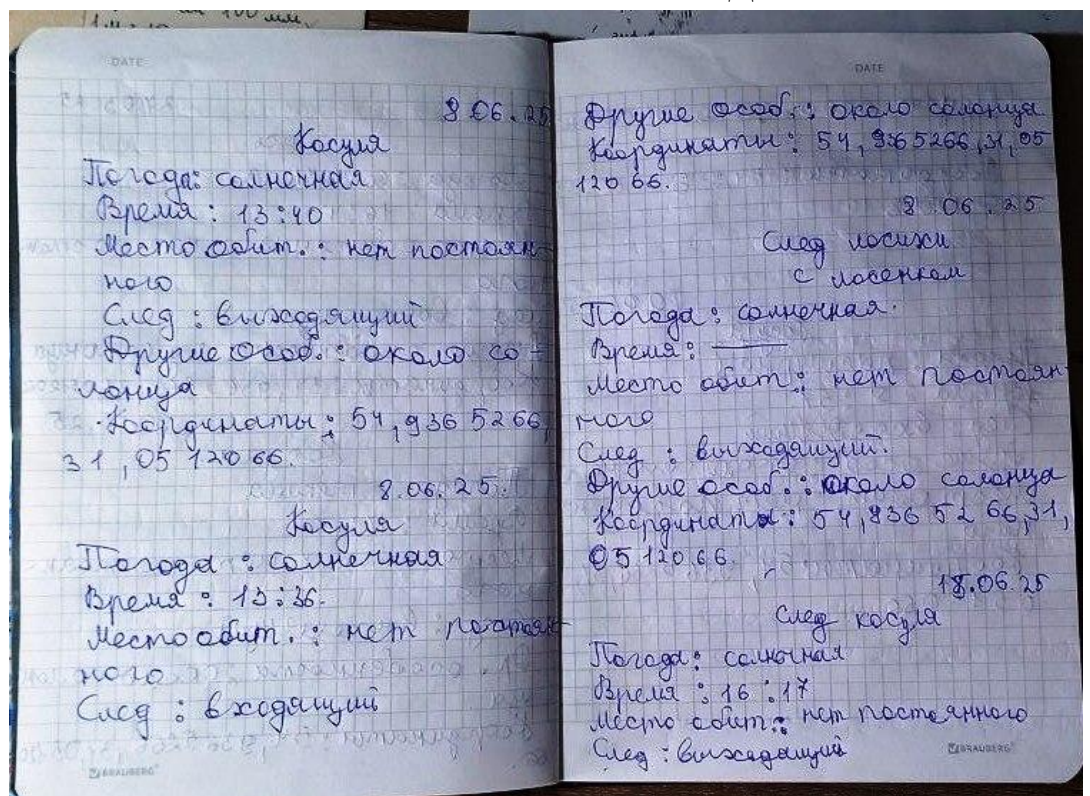 100 мм
DATE
8.06.25
Косуля
Погода: солнечная
Время: 13:40
Место обит.: нет постоян-
ного
След: выходящий
Другие особ.: около со-
лонца
Координаты: 54,9365266,
31,0512066.
8.06.25.
Косуля
Погода: солнечная
Время: 13:36.
Место обит.: нет постоян-
ного
След: входящий
BRAUBERG
DATE
Другие особ.: около солонца
Координаты: 54,9365266,31,05
12066.
8.06.25
След лосихи
с лосенком
Погода: солнечная.
Время: —
Место обит.: нет постоян-
ного
След: выходящий.
Другие особ.: около солонца
Координаты: 54,9365266,31,
0512066.
18.06.25
След косуля
Погода: солночная
Время: 16:17
Место обит.: нет постоянного
След: выходящий
BRAUBERG